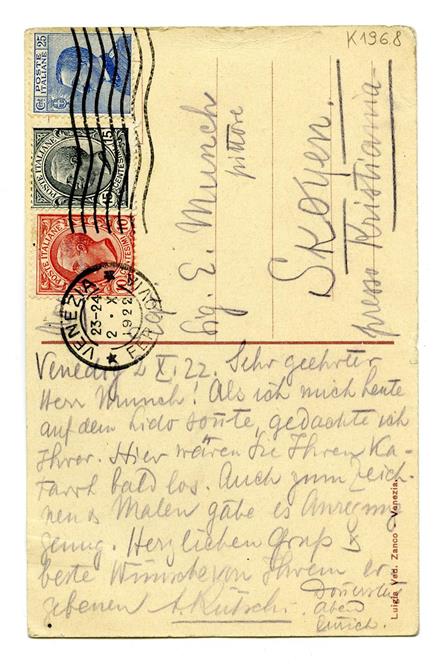 K1968
POSTE ITALIANE 25
POSTE ITALIANE 15
POSTE ITALIANE 10
VENEZIA
23-24
2 · X
1922
FERROVIA
Sig. E. Munch
pittore
Skoyen.
presso Kristiania
Venedig 2 X. 22. Sehr geehrter
Herr Munch! Als ich mich heute
auf dem Lido sonnte, gedachte ich
Ihrer. Hier wären Sie Ihren Ka-
tarrh bald los. Auch zum Zeich-
nen & Malen gäbe es Anregung
genug. Herzlichen Gruß &
beste Wünsche von Ihrem er-
gebenen A. Rütschi.
Zürich.
Luigia Ved. Zanco - Venezia.